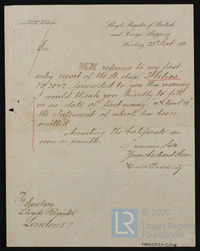 Lloyd's Register of British
and Foreign Shipping
Hamburg 23d Sept. 18
Sir,
With reference to my first
entry report of the S. ship
No 2842 forwarded to you this morning
I would thank you kindly to fill
in as date of last survey 4 April 18
the statement of which has been
omitted.
Awaiting the Certificate as
soon as possible.
I remain Sir
Your obedient Serv.
The Secretary
Lloyd's Register
London E.C.
LLOYD'S REGISTER
FOUNDATION
© 2020